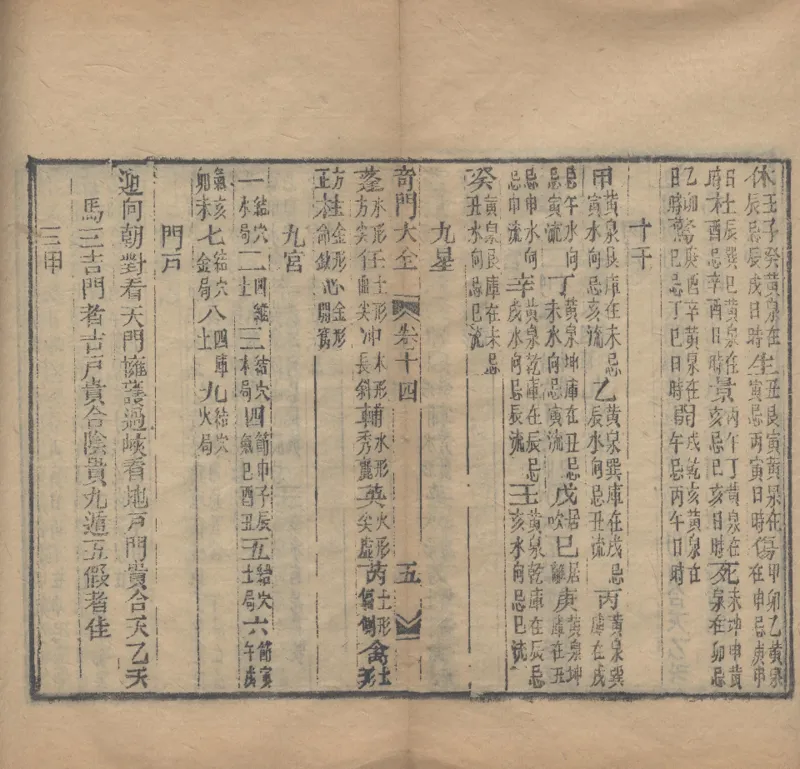 休壬子癸黃泉在辰忌辰戌日時生丑艮寅黃泉在寅忌丙寅日時傷甲卯乙黃泉在申忌庚申
日時杜辰巽巳黃泉在酉忌辛酉日時景丙午丁黃泉在亥忌巳亥日時死未坤申黃泉在卯忌
乙卯日時驚庚酉辛黃泉在巳忌丁巳日時開戌乾亥黃泉在午忌丙午日時
十干
甲黃泉艮庫在未忌寅水向忌亥流乙黃泉巽庫在戌忌辰水向忌丑流丙黃泉巽庫在戌
忌午水向忌寅流丁黃泉坤庫在丑忌未水向忌寅流戊居坎巳居離庚黃泉坤庫在丑
忌申水向忌申流辛黃泉乾庫在辰忌戌水向忌辰流壬黃泉乾庫在辰忌亥水向忌巳流
癸黃泉艮庫在未忌丑水向忌巳流
九星
奇門大全 卷十四 五
蓬水形方尖任土形曲尖冲木形長斜輔水形秀麗英火形尖虛芮土形偏倒禽土形
方正柱金形心金形開窩
九宮
一結穴木局二四維土三結穴木局四節申子辰氣巳酉丑五結穴土局六節寅午戌
氣亥卯未七結穴金局八四庫土九結穴火局
門戸
迎向朝對看天門擁護過峽看地戸門貴合天乙天
馬三吉門者吉戸貴合陰貴九遁五假者佳
三甲